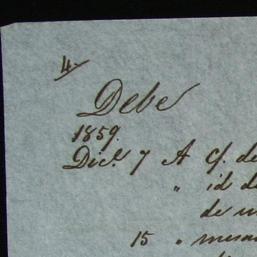 4
Debe
1859.
Dice. 7 A Cf. de
" id de
de
15 " mesa